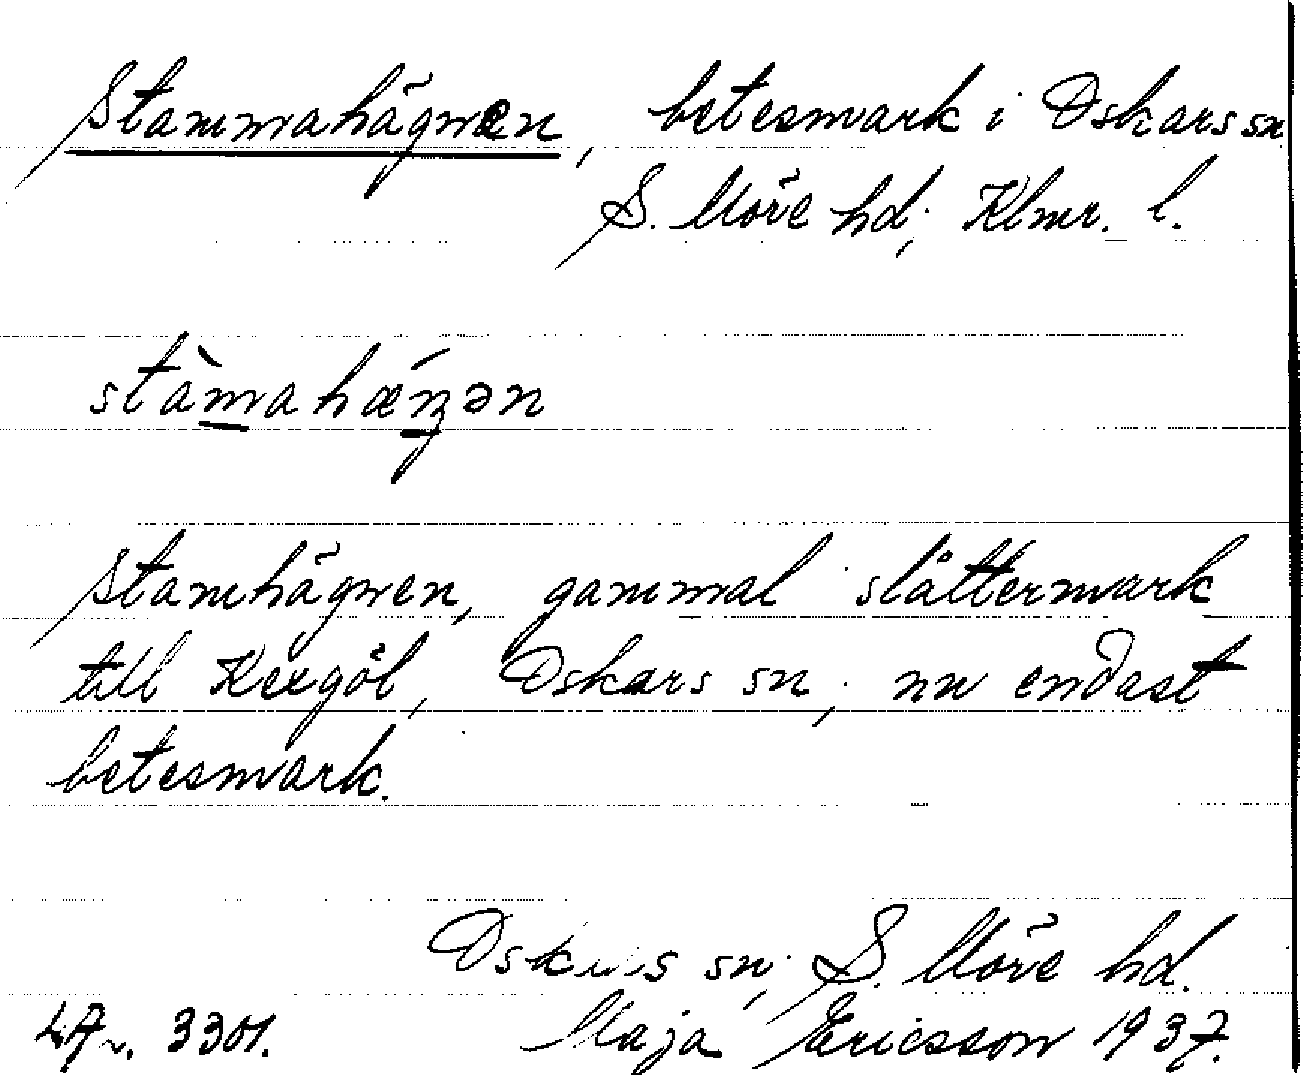 Stammahägnen, betesmark i Oskars sn,
S. Möre hd, Klmr. l.
stàmahǽŋən
Stamhägnen, gammal slåttermark
till Kexgöl, Oskars sn, nu endast
betesmark.
Oskars sn, S. Möre hd.
3301. Maja Ericsson 1937.